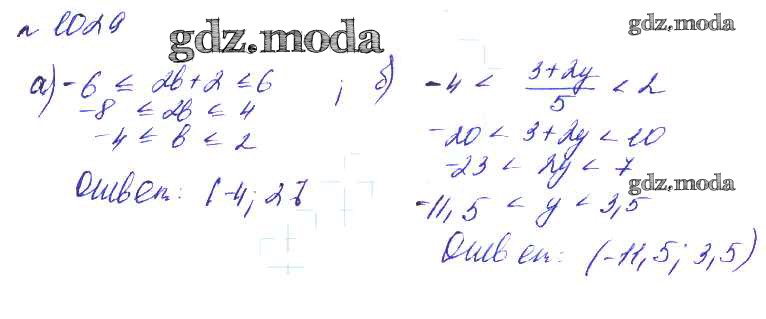 № 1029
gdz.moda
gdz.moda
а) -6 ≤ 2b+2 ≤ 6 ;
-8 ≤ 2b ≤ 4
-4 ≤ b ≤ 2
Ответ: [-4; 2]
б) -4 < (3+2y)/5 < 2
-20 < 3+2y < 10
-23 < 2y < 7
gdz.moda
-11,5 < y < 3,5
Ответ: (-11,5; 3,5)